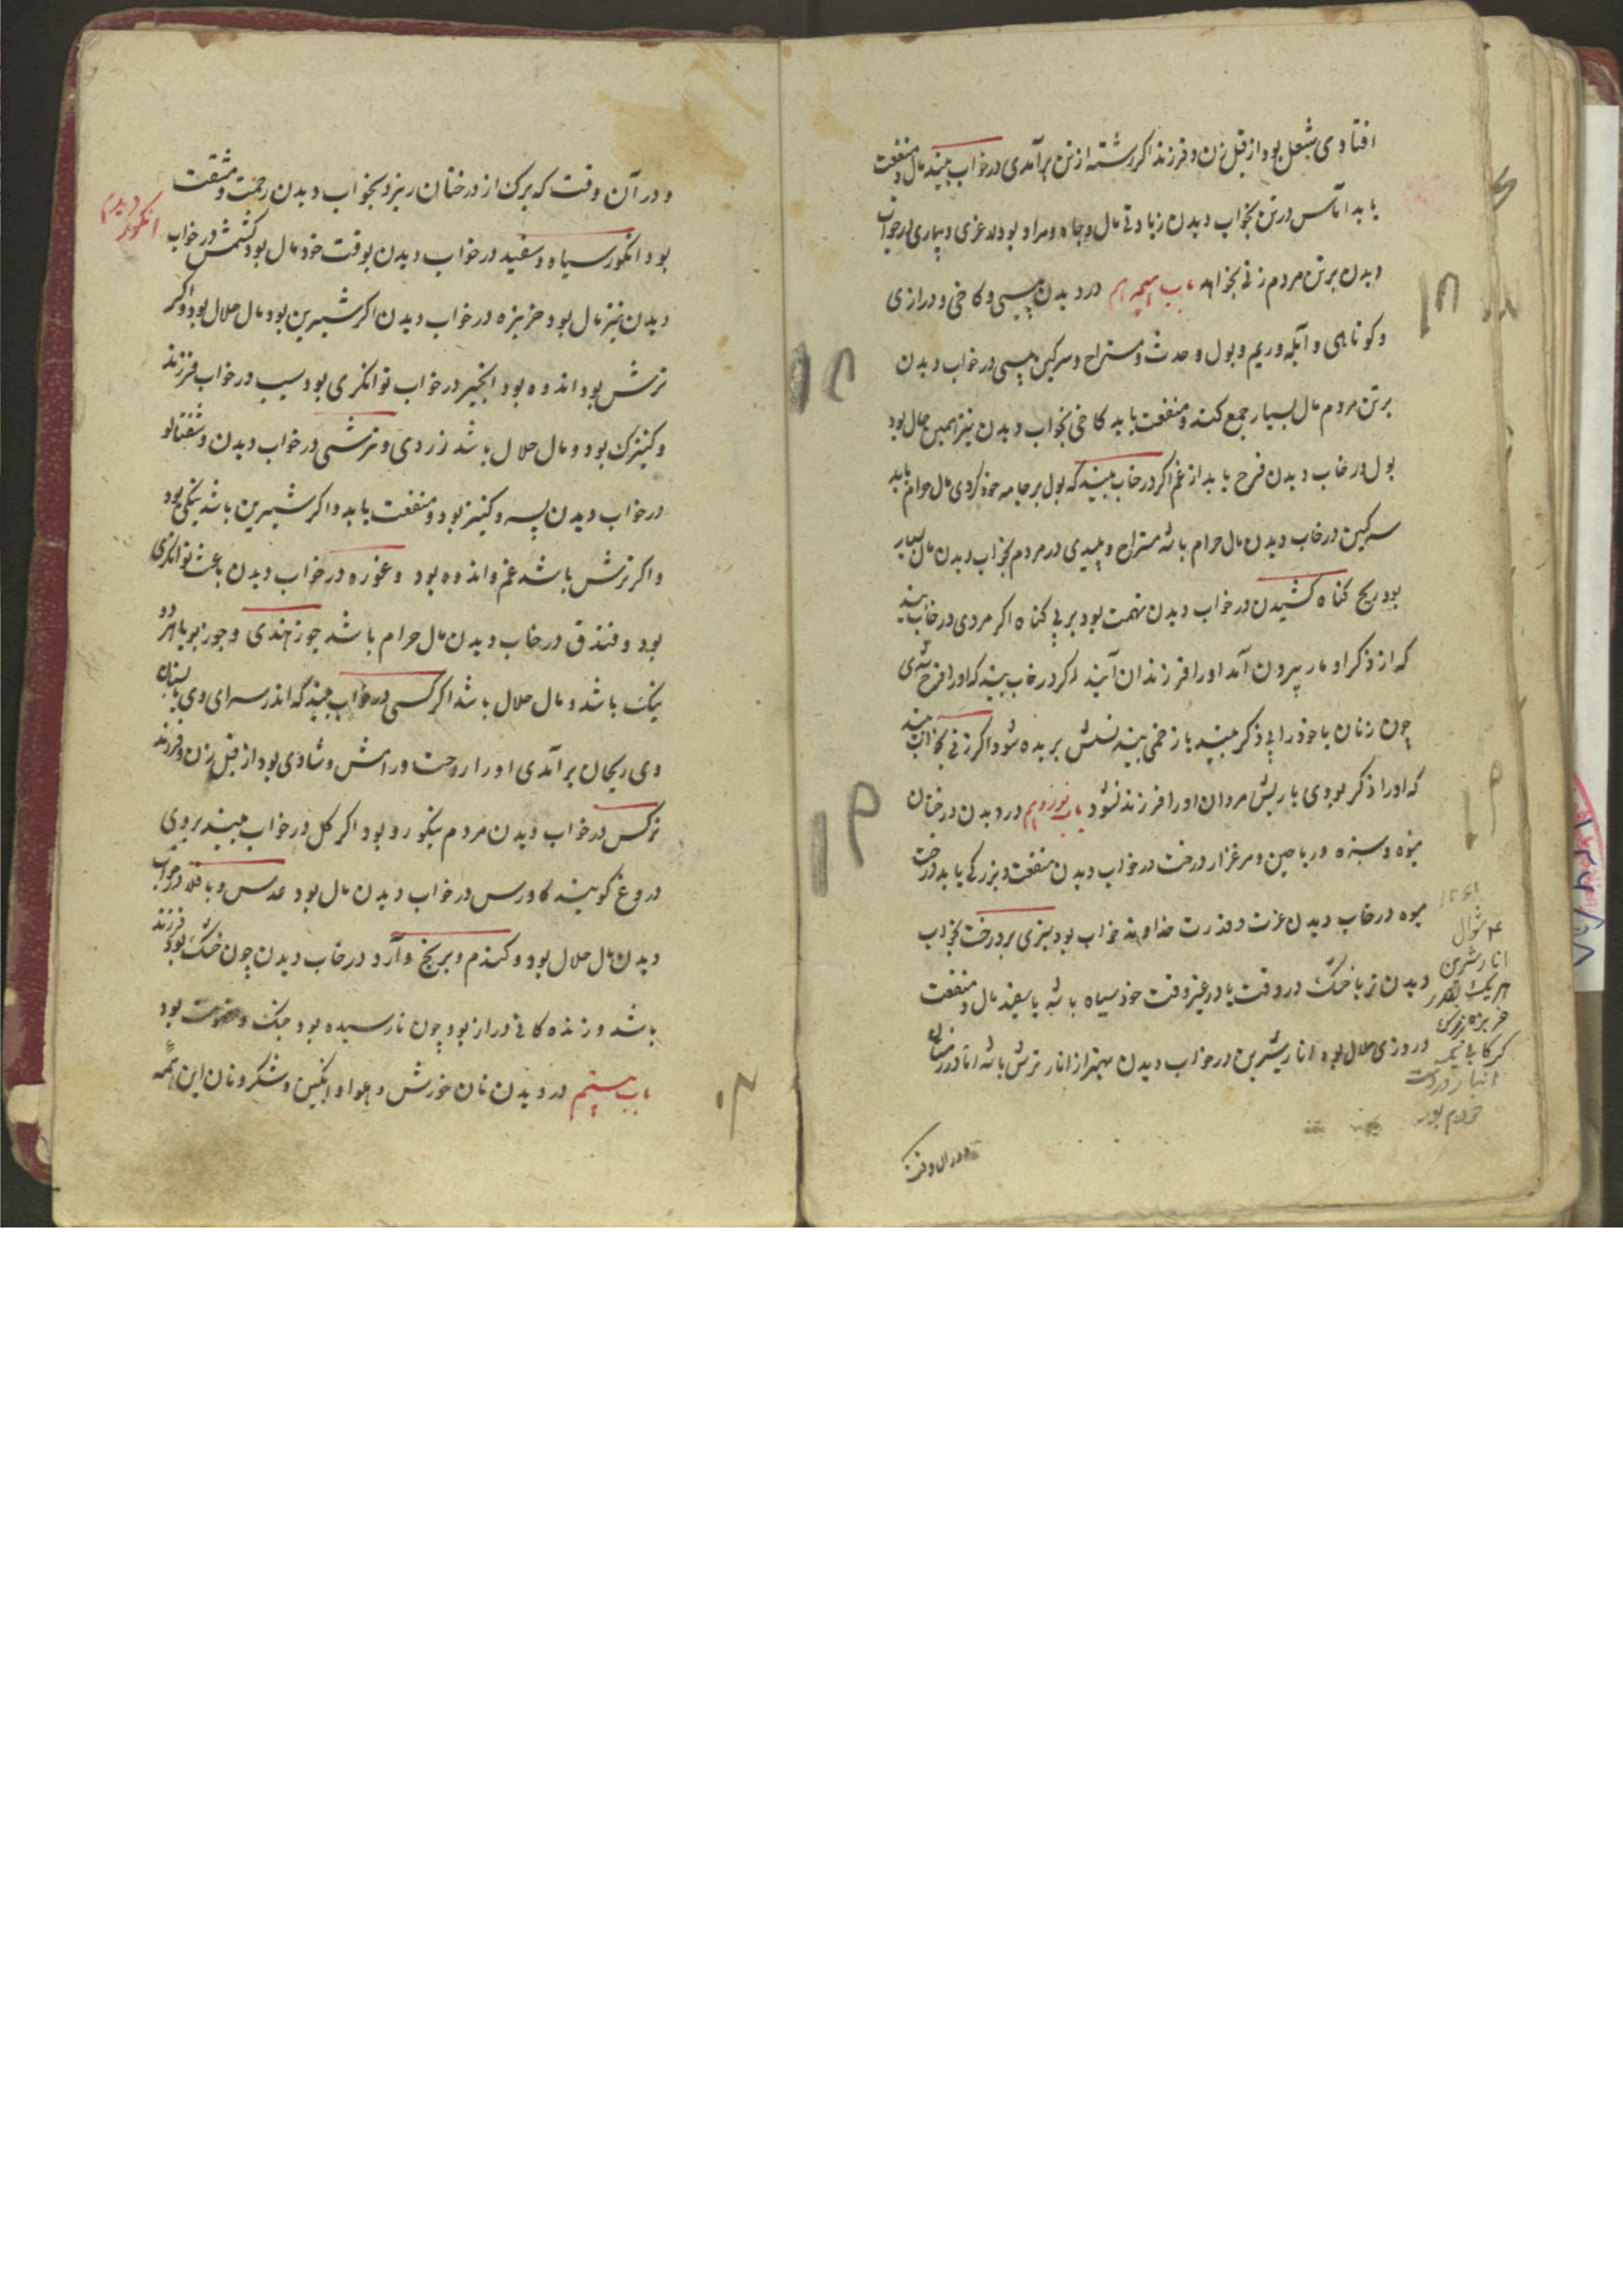 افتادی شغل بود از قبل زن و فرزند اکر رشته از تن برآمدی در خواب بیند مال و منفعت
یابد اماس در تن بخواب دیدن زیادتی مال و جاه و مراد بود لاغری و بیماری در خواب
دیدن برتن مردم زنی بخواهد باب در دیدن پیسی و کاخی و درازی
و کوتاهی و آبله و ریم و بول و حدث و مستراح و سرکین پیسی در خواب دیدن
برتن مردم مال بسیار جمع کند و منفعت یابد کاخی بخواب دیدن نیز همین حال بود
بول در خاب دیدن فرح یابد از غم اکر در خاب بیند که بول بر جامه خود کردی مال حرام یابد
سرکین در خاب دیدن مال حرام باشد مستراح و پلیدی در مردم بخواب دیدن مال بسیار
بود ریح کناه کشیدن در خواب دیدن تهمت بود بر بی کناه اکر مردی در خاب بیند
که از ذکر او مار بیرون آمد اورا فرزندان آیند اکر در خاب بیند که اورا فرح شدی
چون زنان یا خود را بی ذکر بیند یا زخمی بیند نسلش بریده شود اکر زنی بخواب بیند
که اورا ذکر بودی یا ریش مردان اورا فرزند نشود باب نوزدهم در دیدن درختان
میوه و سبزه و ریاحین و مرغزار درخت در خواب دیدن منفعت و بزرکی یابد درخت
میوه در خاب دیدن عزت و قدرت خداوند خواب بود سبزی بر درخت بخواب
دیدن تر یا خشک در وقت یا در غیر وقت خود سیاه باشد یا سفید مال و منفعت
و روزی حلال بود انار شیرین در خواب دیدن بهتر از انار ترش باشد اما در زمستان
ودر ان وقت
۴ شوال
انار شیرین
هریک بقدر
خربزه
خودم بود
۱۹
و در آن وقت که برک از درختان ریزد بخواب دیدن زحمت و مشقت
انکور دیدم
بود انکور سیاه و سفید در خواب دیدن بوقت خود مال بود کشمش در خواب
دیدن نیز مال بود خربزه در خواب دیدن اکر شیرین بود مال حلال بود و اکر
ترش بود اندوه بود انجیر در خواب توانکری بود سیب در خواب فرزند
و کنیزک بود و مال حلال باشد زردی و ترشی در خواب دیدن و شفتالو
در خواب دیدن پسر و کنیز بود و منفعت یابد و اکر شیرین باشد نیکی بود
و اکر ترش باشد غم و اندوه بود و غوره در خواب دیدن باعث توانکری
بود و فندق در خاب دیدن مال حرام باشد جوز هندی و جوز بویا هر دو
نیک باشد و مال حلال باشد اکر کسی در خواب بیند که اندر سرای وی یا بستان
وی ریحان برآمدی اورا روحت و رامش و شادی بود از قبل زن و فرزند
نرکس در خواب دیدن مردم نیکو رو بود اکر کل در خواب بیند بروی
دروغ کویند کاورس در خواب دیدن مال بود عدس و باقلا در خواب
دیدن مال حلال بود و کندم و برنج و آرد در خاب دیدن چون خشک بود فرزند
باشد و زنده کانی دراز بود چون نارسیده بود جنک و خصومت بود
باب بیستم در دیدن نان خورش و حلوا و انکبین و شکر و نان این همه
۲۰